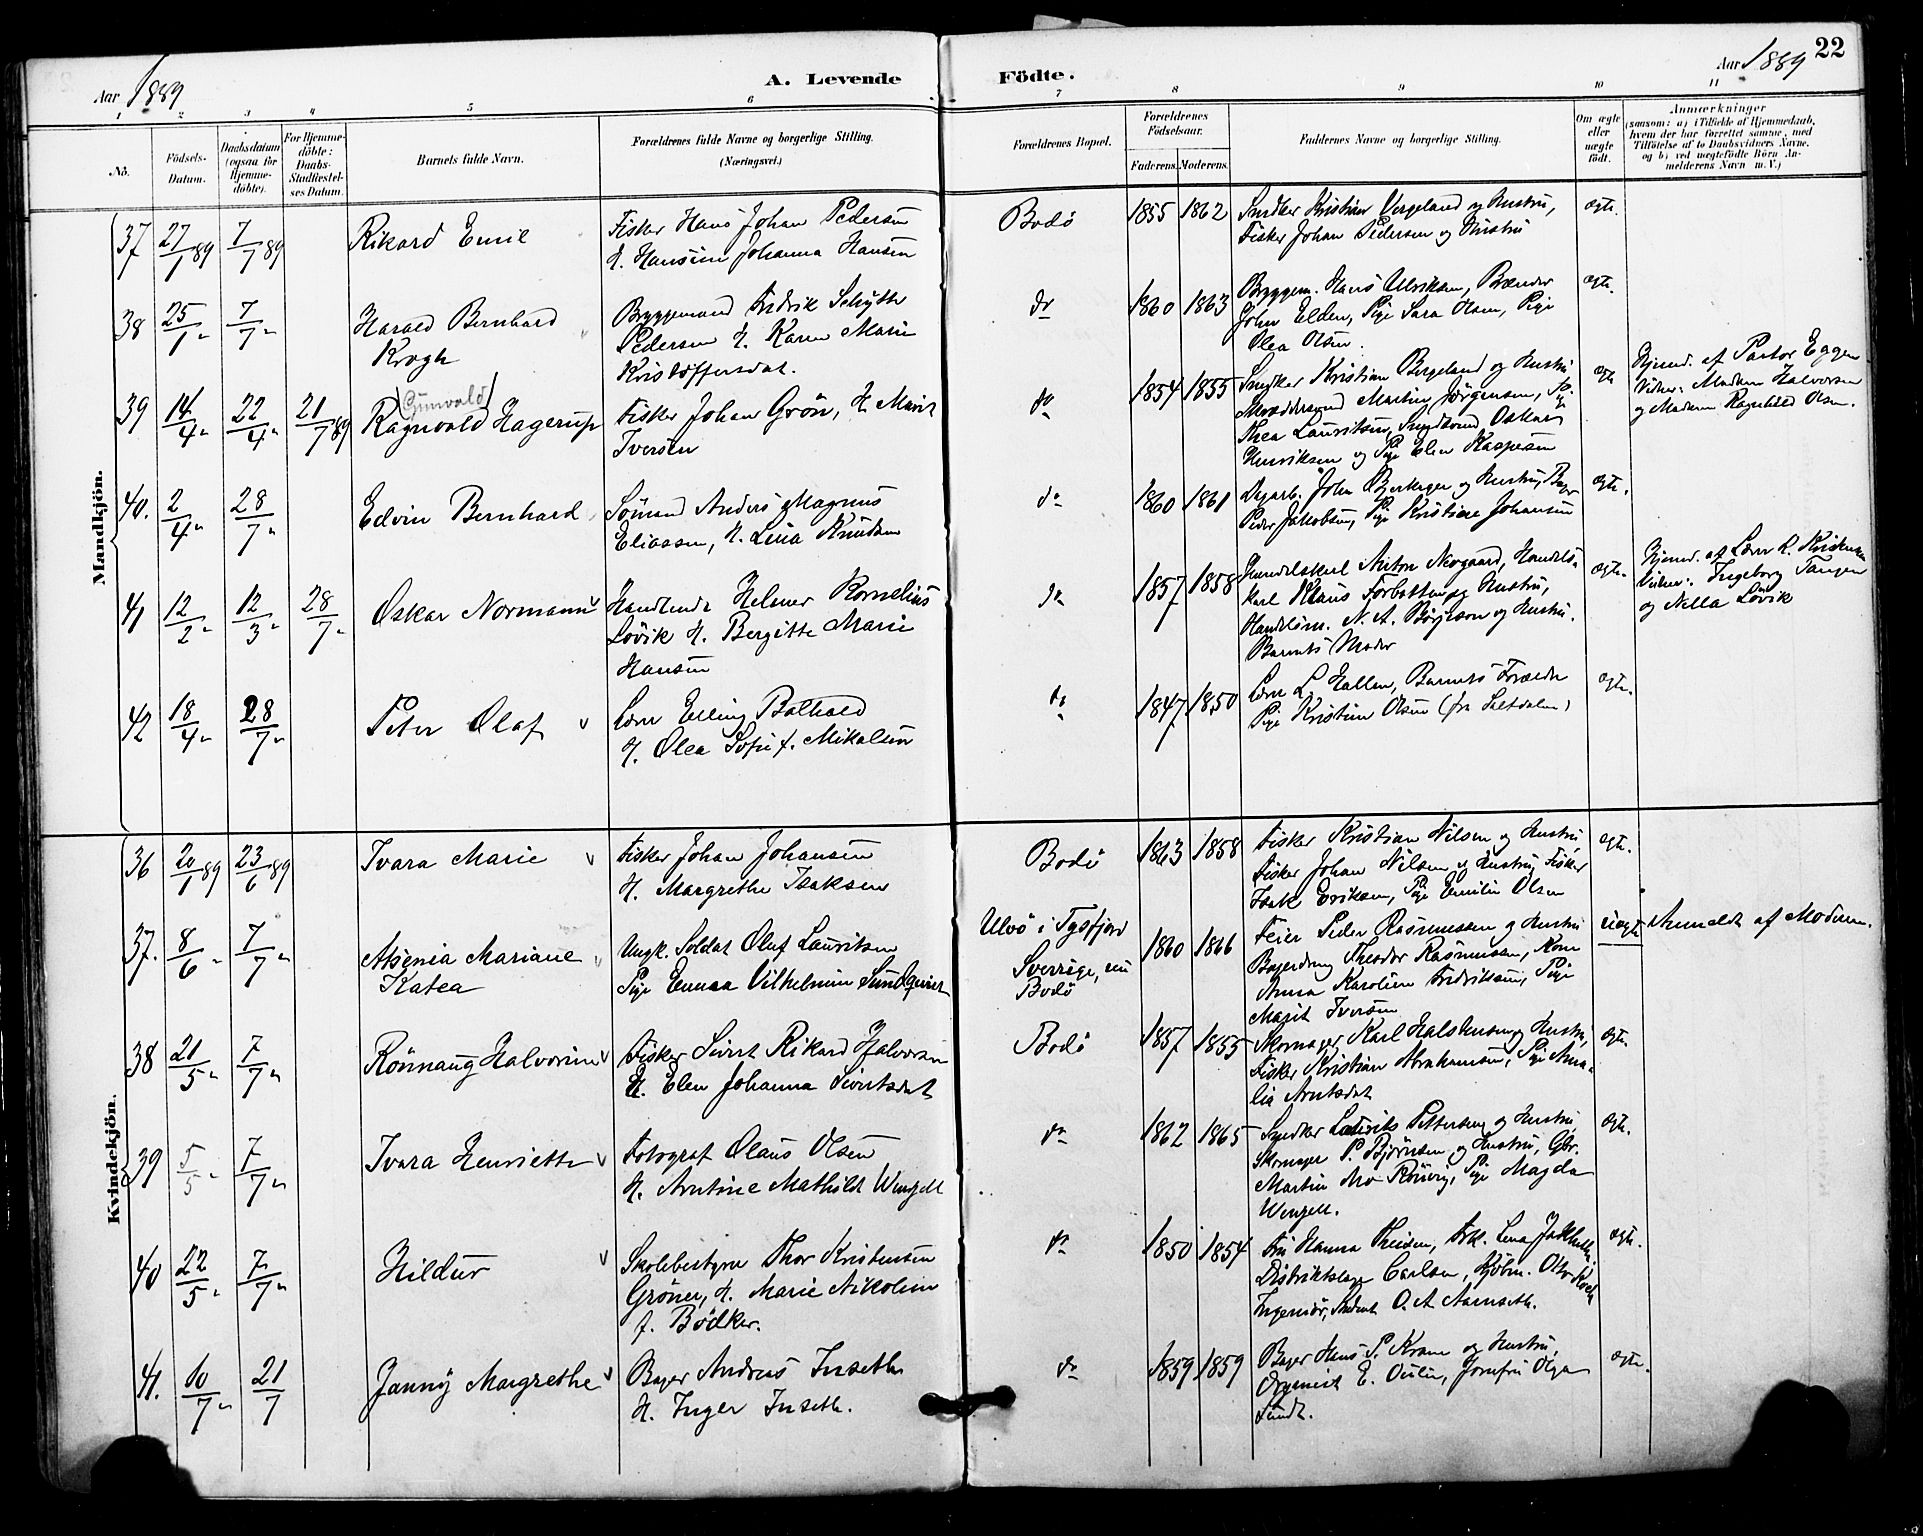 22
Aar 1889
A. Levende Födte.
Aar 1889
1 2 3 4 5 6 7 8 9 10 11
No.
Födsels-
Datum.
Daabsdatum
(ogsaa for
Hjemme-
döbte).
For Hjemme-
döbte:
Daabs-
Stadfæstel-
ses Datum.
Barnets fulde Navn.
Forældrenes fulde Navne og borgerlige Stilling.
(Næringsvei.)
Forældrenes Bopæl.
Forældrenes
Födselsaar.
Faderens. Moderens.
Faddernes Navne og borgerlige Stilling.
Om ægte
eller
uægte
födt.
Anmærkninger
(saasom: a) i Tilfælde af Hjemmedaab,
hvem der har forrettet samme, med
Tilföielse af to Daabsvidners Navne,
og b) ved uægtefödte Börn An-
melderens Navn m. V.)
Mandkjön.
37 27/1 89 7/7 89
Rikard Emil
Fisker Hans Johan Pedersen
H. Hansine Johanna Hansen
Bodø 1855 1862
Snedker Kristian Vergeland og Hustru,
Fisker Johan Pedersen og Hustru
ægte.
38 25/1 " 7/7 "
Harald Bernhard
Krogh
Bryggemand Fredrik Schytte
Pedersen H. Karen Marie
Kristoffersdat.
do 1860 1863
Bryggem. Hans Ulriksen, Brænder
John Elden, Pige Sara Olsen, Pige
Olea Olsen.
ægte.
39 14/4 " 22/4 " 21/7 89
(Gunvald)
Ragnvald Hagerup
Fisker Johan Grön, H. Marit
Iversen
do 1854 1855
Snedker Kristian Bergeland og Hustru
Skræddersvend Martin Jörgensen, Pige
Thea Lauritsen, Snedksvend Oskar
Henriksen og Pige Elen Kaspersen
ægte
Hjemd. af Pastor Eggen
Vidner: Madam Halvorsen
og Madam Ragnhild Olsen.
40. 2/4 " 28/7 "
Edvin Bernhard
Sömand Anders Magnus
Eliassen, H. Lina Knudsen
do 1860 1861
Dagarb. John Bjerkager og Hustru, Bager
Peder Jakobsen, Pige Kristine Johansen
ægte.
41 12/2 " 12/3 " 28/7 "
Oskar Normann
Handlende Helmer Kornelius
Lövik H. Bergitte Marie
Hansen
do 1857 1858
Handelskarl Anton Norgaard, Handels-
karl Klaus Forbotten og Hustru,
Handelsm. N. A. Börjeson og Hustru.
Barnets Moder
ægte.
Hjemd. af Lærer L. Kristensen
Vidner: Ingeborg Tangen
og Nella Lövik
42 18/4 " 28/7 "
Peter Olaf
Lærer Elling Bothold
H. Olea Sofie f. Mikalsen
do 1847 1850
Lærer L. Hallen, Barnets Forældre
Pige Kristine Olsen (fra Saltdalen)
ægte.
Kvindekjön.
36 20/1 89 23/6 89
Ivara Marie
Fisker Johan Johansen
H. Margrethe Isaksen
Bodø 1863 1858
Fisker Kristian Nilsen og Hustru,
Fisker Johan Nilsen og Hustru, Fisker
Isak Eriksen, Pige Emilie Olsen
ægte.
37. 8/6 " 7/7 "
Alsenia Mariane
Katea
Ungk. Soldat Oluf Lauritsen
Pige Emma Vilhelmine Sundqvist
Ulvö i Tysfjord
Sverrige, nu
Bodø
1860 1866
Feier Peder Rasmussen og Hustru
Bagerdreng Theodor Rasmussen, Kone
Anna Karoline Fredriksen, Pige
Marit Iversen
uægte Anmeldt af Moderen.
38 21/5 " 7/7 "
Rönnaug Halvorine
Fisker Sivert Rikard Halvorsen
H. Elen Johanna Sivertsdat
Bodø 1857 1855
Skomager Karl Halstensen og Hustru,
Fisker Kristian Abrahamsen, Pige Ama-
lia Arntsdat
ægte
39 5/5 " 7/7 "
Ivara Henriette
Fotograf Olaus Olsen
H. Arntine Mathilde Wengell
do 1862 1865
Snedker Laurits Pettersen og Hustru,
Skomager P. Björnsen og Hustru, Gbr.
Martin Mo Rönvig, Pige Magda
Wengell.
ægte.
40 22/5 " 7/7 "
Hildur
Skolebestyrer Thor Kristensen
Gröner, H. Marie Nikoline
f. Bödker.
do 1850 1854
Fru Hanna Theisen, Frk. Lena
Distriktslæge Carlsen, Kjöbm. Otto Koch
Ingeniör, Student O. A. Aarseth.
ægte.
41. 10/7 " 21/7
Jannÿ Margrethe
Bager Andreas Inseth
H. Inger Inseth.
do 1859 1859
Bager Hans P. Krane og Hustru,
Organist E. Oulie, Jomfru Olga
Sundt.
ægte.